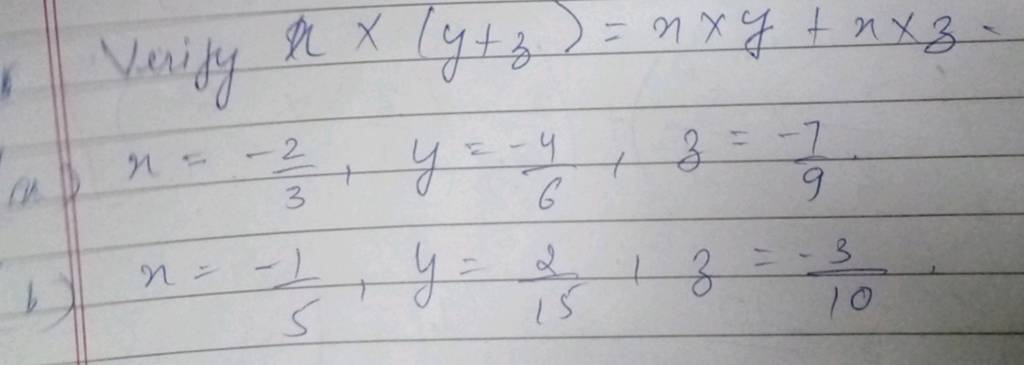 Verify x × (y+z) = x × y + x × z -
a) x = -2/3, y = -4/6, z = -7/9.
b) x = -1/5, y = 2/15, z = -3/10.